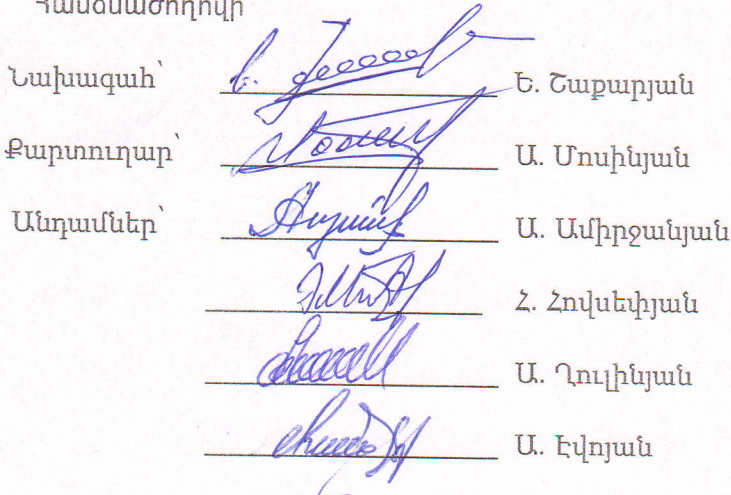 Հանձնաժողովի
Նախագահ՝ Ե. Շաքարյան
Քարտուղար՝ Ա. Մոսինյան
Անդամներ՝ Ա. Ամիրջանյան
Հ. Հովսեփյան
Ա. Ղուլինյան
Ա. Էվոյան